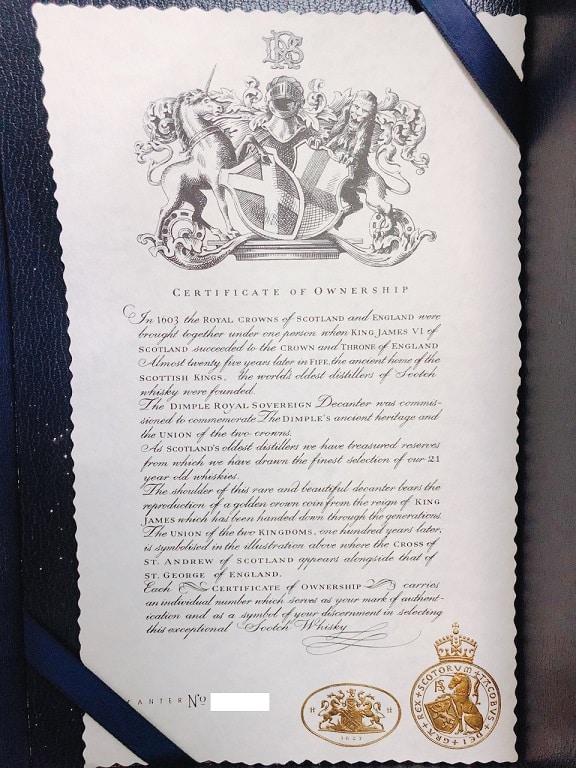 DRS
CERTIFICATE OF OWNERSHIP
In 1603 the ROYAL CROWNS of SCOTLAND and ENGLAND were
brought together under one person when KING JAMES VI of
SCOTLAND succeeded to the CROWN and THRONE of ENGLAND
Almost twenty five years later in FIFE, the ancient home of the
SCOTTISH KINGS, the world's oldest distillers of Scotch
whisky were founded.
The DIMPLE ROYAL SOVEREIGN Decanter was commis-
sioned to commemorate The DIMPLE'S ancient heritage and
the UNION of the two crowns.
As SCOTLAND'S oldest distillers we have treasured reserves
from which we have drawn the finest selection of our 21
year old whiskies.
The shoulder of this rare and beautiful decanter bears the
reproduction of a golden crown coin from the reign of KING
JAMES which has been handed down through the generations.
The UNION of the two KINGDOMS, one hundred years later,
is symbolised in the illustration above where the CROSS of
ST. ANDREW of SCOTLAND appears alongside that of
ST. GEORGE of ENGLAND.
Each CERTIFICATE of OWNERSHIP carries
an individual number which serves as your mark of authent-
ication and as a symbol of your discernment in selecting
this exceptional Scotch Whisky
CANTER No
H H
1627
SCOTORVM JACOBVS DEI GRA REX